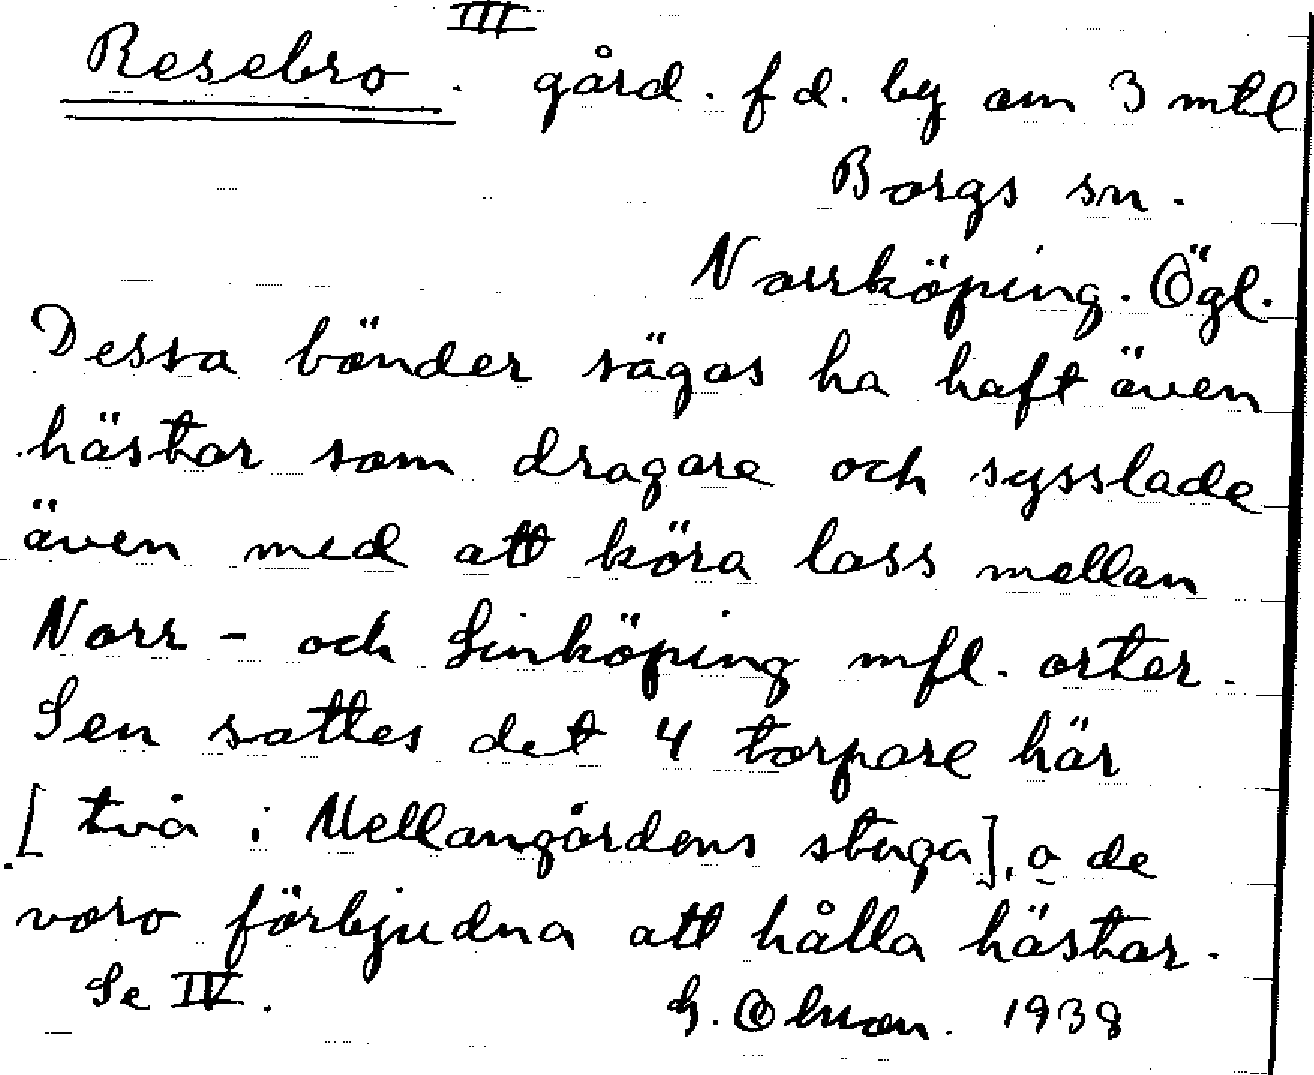 III
Resebro. gård. f d. by om 3 mtl
Borgs sn.
Norrköping. Ögl.
Dessa bönder sägas ha haft även
hästar som dragare och sysslade
även med att köra lass mellan
Norr- och Linköping mfl. orter.
Sen sattes det 4 torpare här
[två i Mellangårdens stuga], o de
voro förbjudna att hålla hästar.
Se IV. G. Olsson. 1938